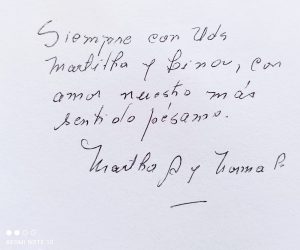 Siempre con Uds
Marthitha y Linov, con
amor nuestro más
sentido pésamo.
Martha P y Norma P.
REDMI NOTE 10